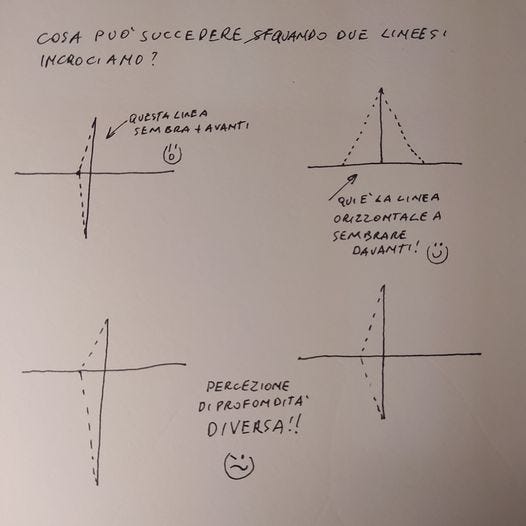 COSA PUO' SUCCEDERE QUANDO DUE LINEE SI
INCROCIANO?
QUESTA LINEA
SEMBRA + AVANTI
QUI E' LA LINEA
ORIZZONTALE A
SEMBRARE
DAVANTI!
PERCEZIONE
DI PROFONDITA'
DIVERSA!!